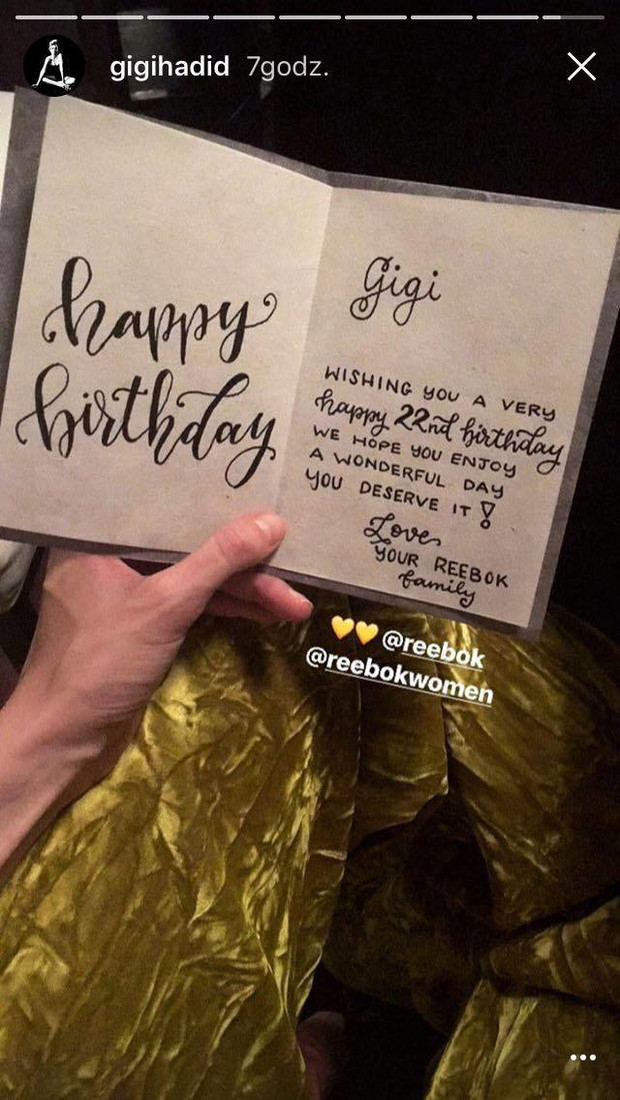 gigihadid 7godz.
happy
birthday
Gigi
WISHING YOU A VERY
happy 22nd birthday
WE HOPE YOU ENJOY
A WONDERFUL DAY
YOU DESERVE IT!
Love,
YOUR REEBOK
family
💛💛 @reebok
@reebokwomen